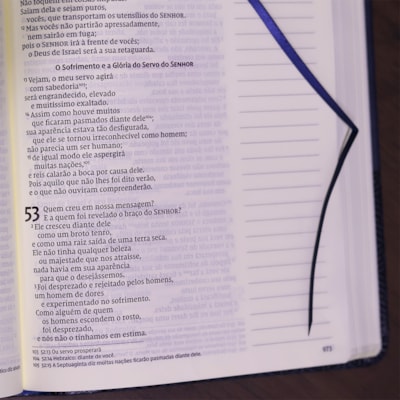 Não toquem em coisas
Saiam dela e sejam puros,
vocês, que transportam os utensílios do SENHOR.
12 Mas vocês não partirão apressadamente,
nem sairão em fuga;
pois o SENHOR irá à frente de vocês;
o Deus de Israel será a sua retaguarda.
O Sofrimento e a Glória do Servo do SENHOR
13 Vejam, o meu servo agirá
com sabedoria103;
será engrandecido, elevado
e muitíssimo exaltado.
14 Assim como houve muitos
que ficaram pasmados diante dele104;
sua aparência estava tão desfigurada,
que ele se tornou irreconhecível como homem;
não parecia um ser humano;
15 de igual modo ele aspergirá
muitas nações,105
e reis calarão a boca por causa dele.
Pois aquilo que não lhes foi dito verão,
e o que não ouviram compreenderão.
53 Quem creu em nossa mensagem?
E a quem foi revelado o braço do SENHOR?
2 Ele cresceu diante dele
como um broto tenro,
e como uma raiz saída de uma terra seca.
Ele não tinha qualquer beleza
ou majestade que nos atraísse,
nada havia em sua aparência
para que o desejássemos.
3 Foi desprezado e rejeitado pelos homens,
um homem de dores
e experimentado no sofrimento.
Como alguém de quem
os homens escondem o rosto,
foi desprezado,
e nós não o tínhamos em estima.
103 52.13 Ou servo prosperará
104 52.14 Hebraico: diante de você.
105 52.15 A Septuaginta diz muitas nações ficarão pasmadas diante dele.
973